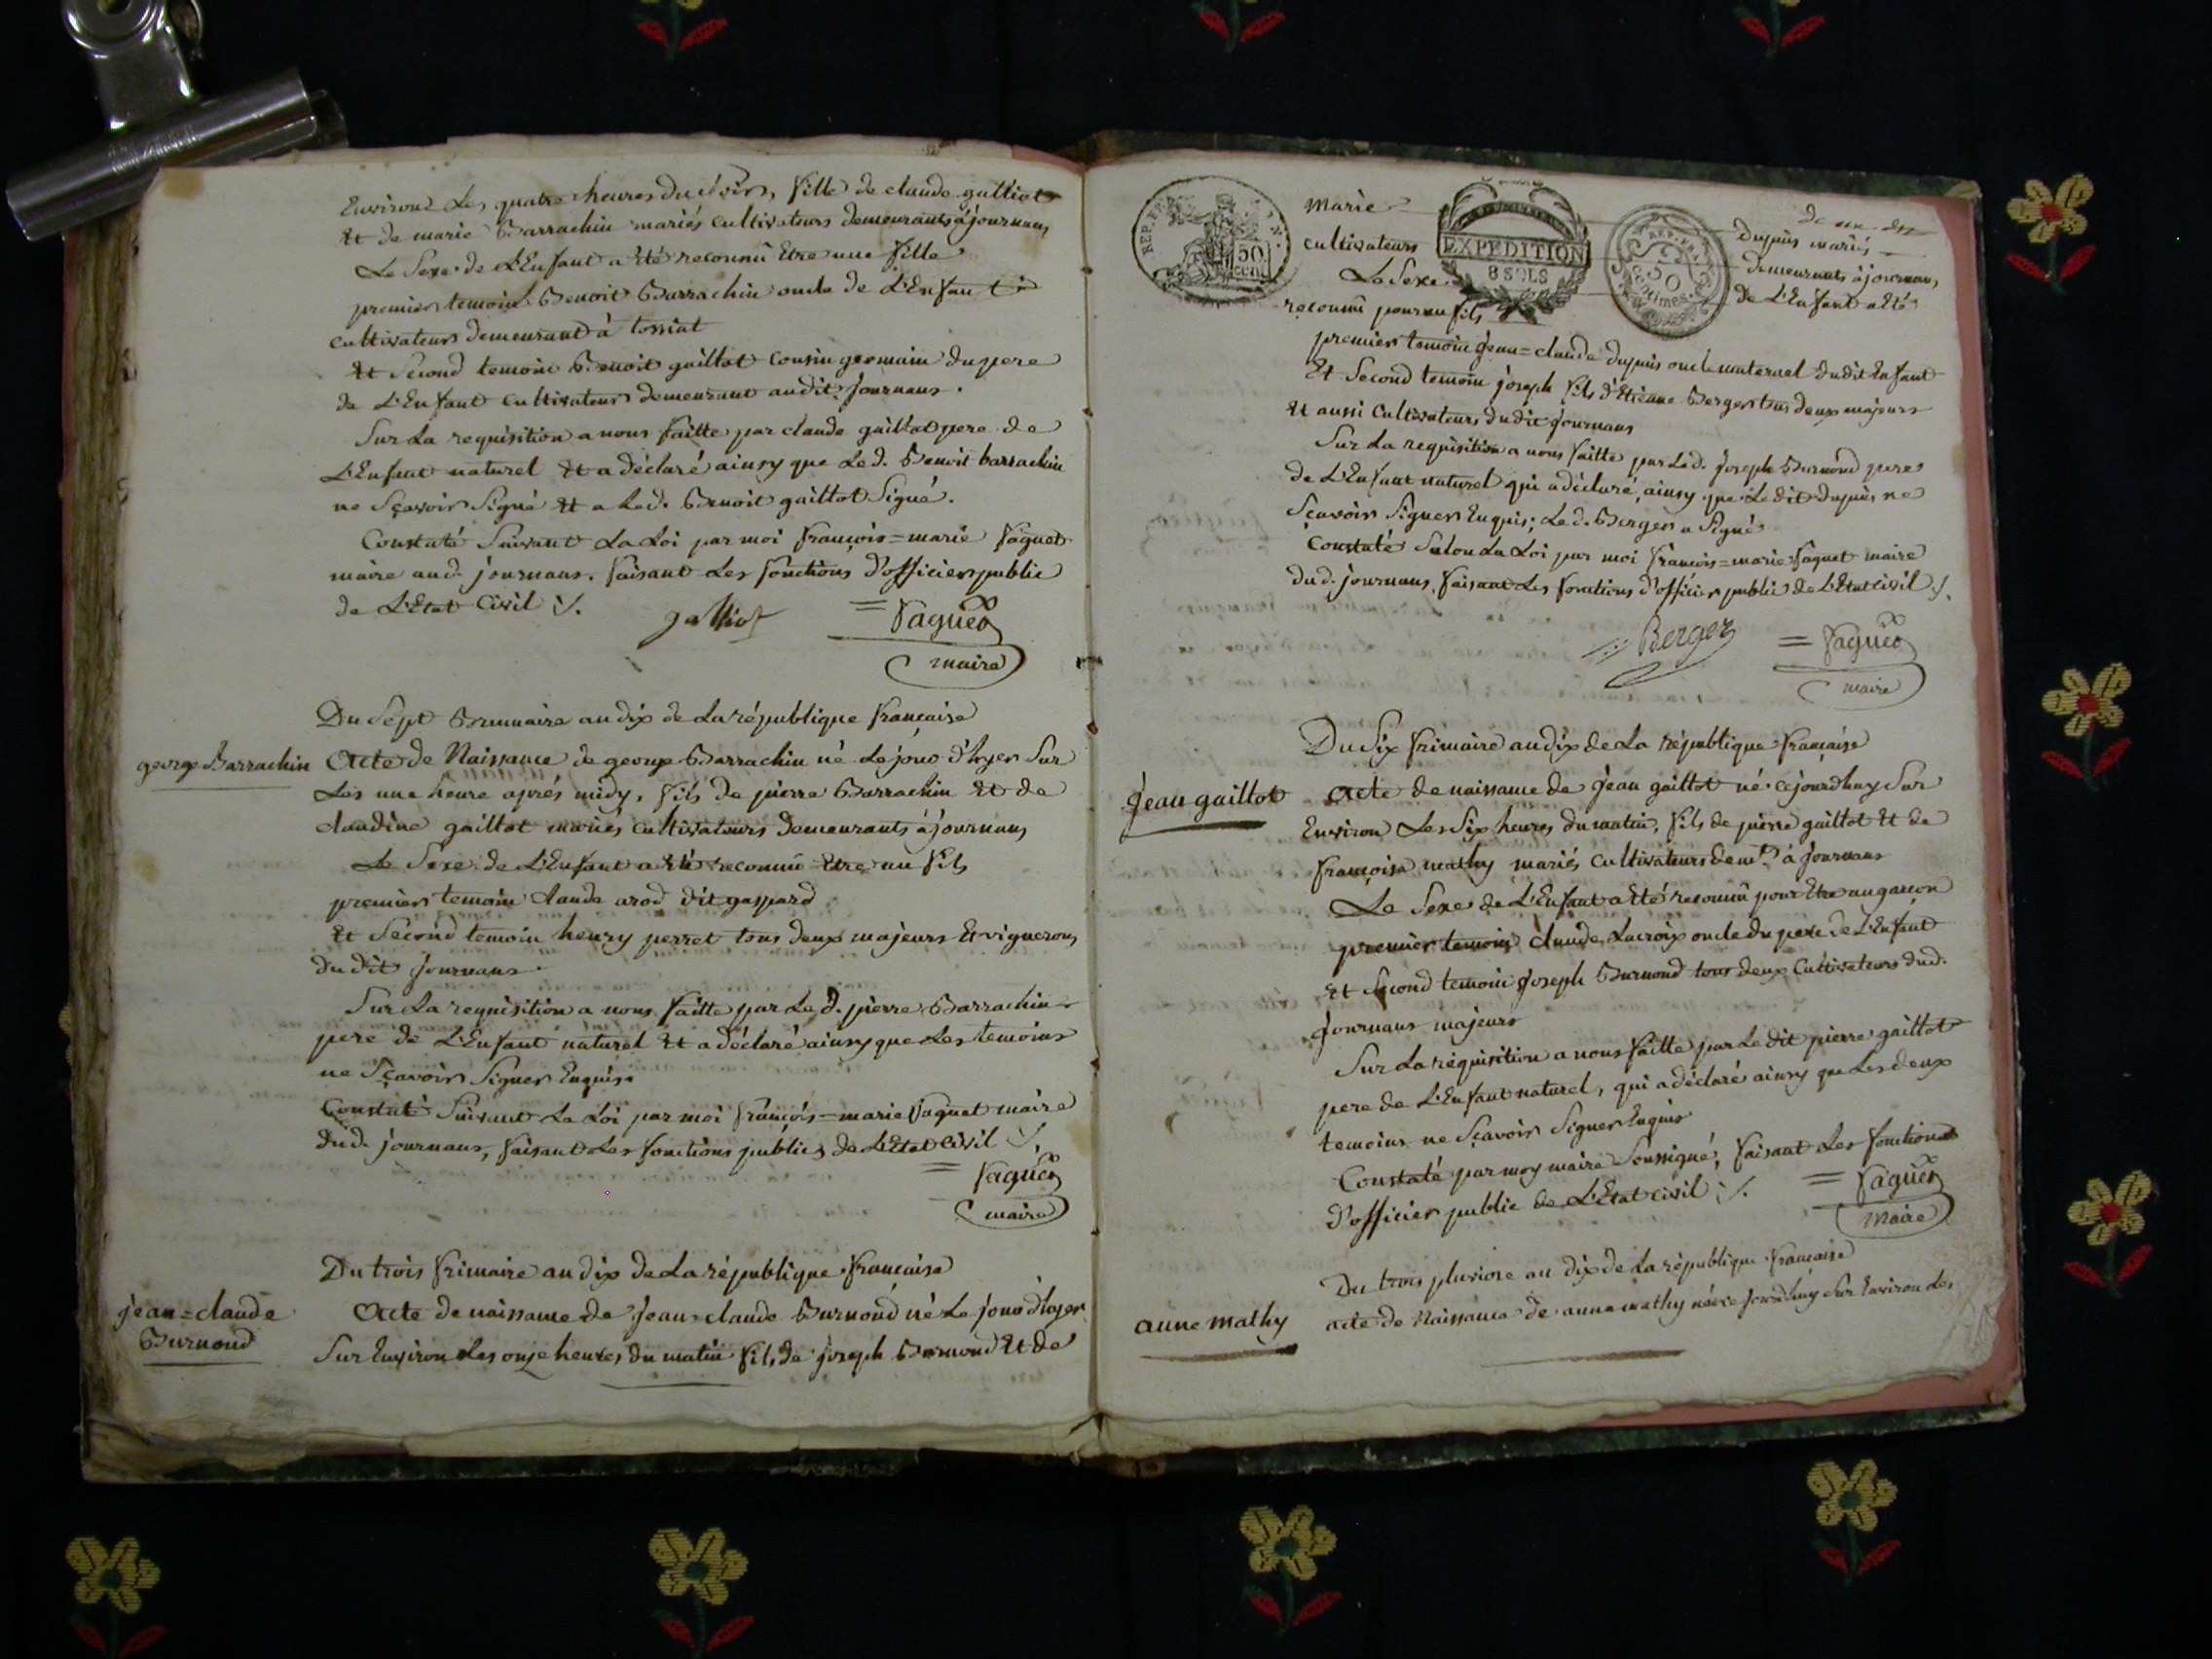 Environ Les quatre heures du soir, fille de claude galliot
Et de marie Barrachin mariés cultivateurs demeurants à journans
Le Sexe de L'Enfant a Eté reconnû Etre une fille
premier temoin Benoit Barrachin oncle de L'Enfant
cultivateur demeurant à tossiat
Et Second temoin Benoit gaillot cousin germain du pere
de L'Enfant cultivateur demeurant audit journans.
Sur La requisition a nous faitte par claude gaillot pere de
L'Enfant naturel Et a déclaré ainsy que Le d. Benoit barrachin
ne Sçavoir Signé Et a Le d. Benoit gaillot Signé.
Constaté Suivant La Loi par moi françois=marie faguet
maire aud. journans. faisant Les fonctions d'officier public
de L'Etat Civil ./.
galliot
= faguet
maire
Du Sept Brumaire an dix de La république française
george Barrachin
Acte de Naissance de george Barrachin né Le jour d'hyer Sur
Les une heure aprés midy, fils de pierre Barrachin Et de
claudine gaillot mariés cultivateurs demeurants à journans
Le Sexe de L'Enfant a Eté reconnu Etre un fils
premier temoin claude arod dit gaspard
Et Sécond temoin henry perret tous deux majeurs Et vignerons
du dit journans.
Sur La requisition a nous faitte par Le d. pierre Barrachin
pere de L'Enfant naturel Et a déclaré ainsy que Les temoins
ne Sçavoir Signer Enquis.
Constaté Suivant La Loi par moi françois=marie faguet maire
du d. journans, faisant Les fonctions public de L'Etat civil ./.
= faguet
maire
Du trois frimaire an dix de La république française
jean=claude
Burnond
Acte de naissance de Jean=claude Burnond né Le jour d'hyer
Sur Environ Les onze heures du matin fils de joseph Burnond Et de
REP. FRA.
50
cent.
EXPEDITION
8 SOLS
REP. FRA.
50
centimes.
marie
dupuis mariés
cultivateurs
demeurants à journans,
Le Sexe
de L'Enfant a Eté
reconnû pour un fils
premier temoin Jean=claude dupuis oncle maternel dudit Enfant
Et Second temoin joseph fils d'Etienne Berger tous deux majeurs
Et aussi Cultivateurs dudit journans
Sur La requisition a nous faitte par Le d. Joseph Burnond pere
de L'Enfant naturel qui a déclaré, ainsy que Le dit dupuis, ne
Sçavoir Signer Enquis; Le d. Berger a Signé
Constaté Selon La Loi par moi françois=marie faguet maire
du d. journans, faisant Les fonctions d'officier public de L'Etat civil ./.
Berger
= faguet
maire
Du Six frimaire an dix de La république française
Jean gaillot
Acte de naissance de Jean gaillot né cejourdhuy Sur
Environ Les Six heures du matin, fils de pierre gaillot Et de
françoise mathy mariés cultivateurs demts à journans
Le Sexe de L'Enfant a Eté reconnû pour Etre un garcon
premier temoin claude Lacroix oncle du pere de L'Enfant
Et Second temoin Joseph Burnond tous deux Cultivateurs dud.
Journans majeurs
Sur La réquisition a nous faitte par Le dit pierre gaillot
pere de L'Enfant naturel, qui a déclaré ainsy que Les deux
temoins ne Sçavoir Signer Enquis
Constaté par moy maire Soussigné, faisant Les fonctions
d'officier public de L'Etat civil ./.
= faguet
Maire
Du trois pluviose an dix de La république française
anne mathy
acte de Naissance de anne mathy née ce Jourdhuy Sur Environ Les